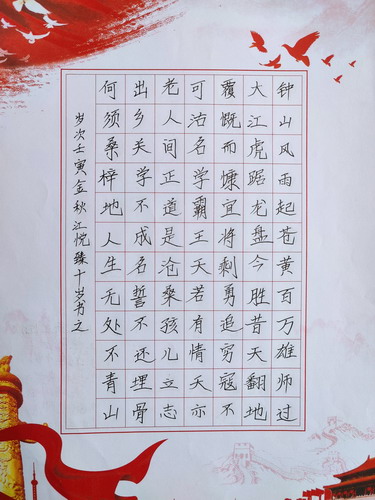 钟山风雨起苍黄百万雄师过
大江虎踞龙盘今胜昔天翻地
覆慨而慷宜将剩勇追穷寇不
可沽名学霸王天若有情天亦
老人间正道是沧桑孩儿立志
出乡关学不成名誓不还埋骨
何须桑梓地人生无处不青山
岁次壬寅金秋江悦臻十岁书之